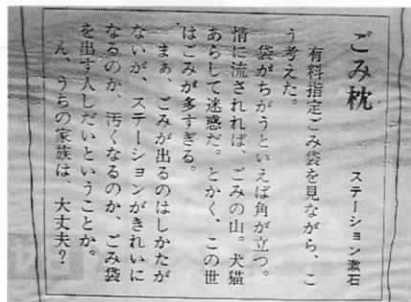 ごみ枕
ステーション漱石
有料指定ごみ袋を見ながら、こ
う考えた。
袋がちがうといえば角が立つ。
情に流されれば、ごみの山。犬猫
あらして迷惑だ。とかく、この世
はごみが多すぎる。
まぁ、ごみが出るのはしかたが
ないが、ステーションがきれいに
なるのか、汚くなるのか、ごみ袋
を出す人しだいということか。
ん、うちの家族は、大丈夫?